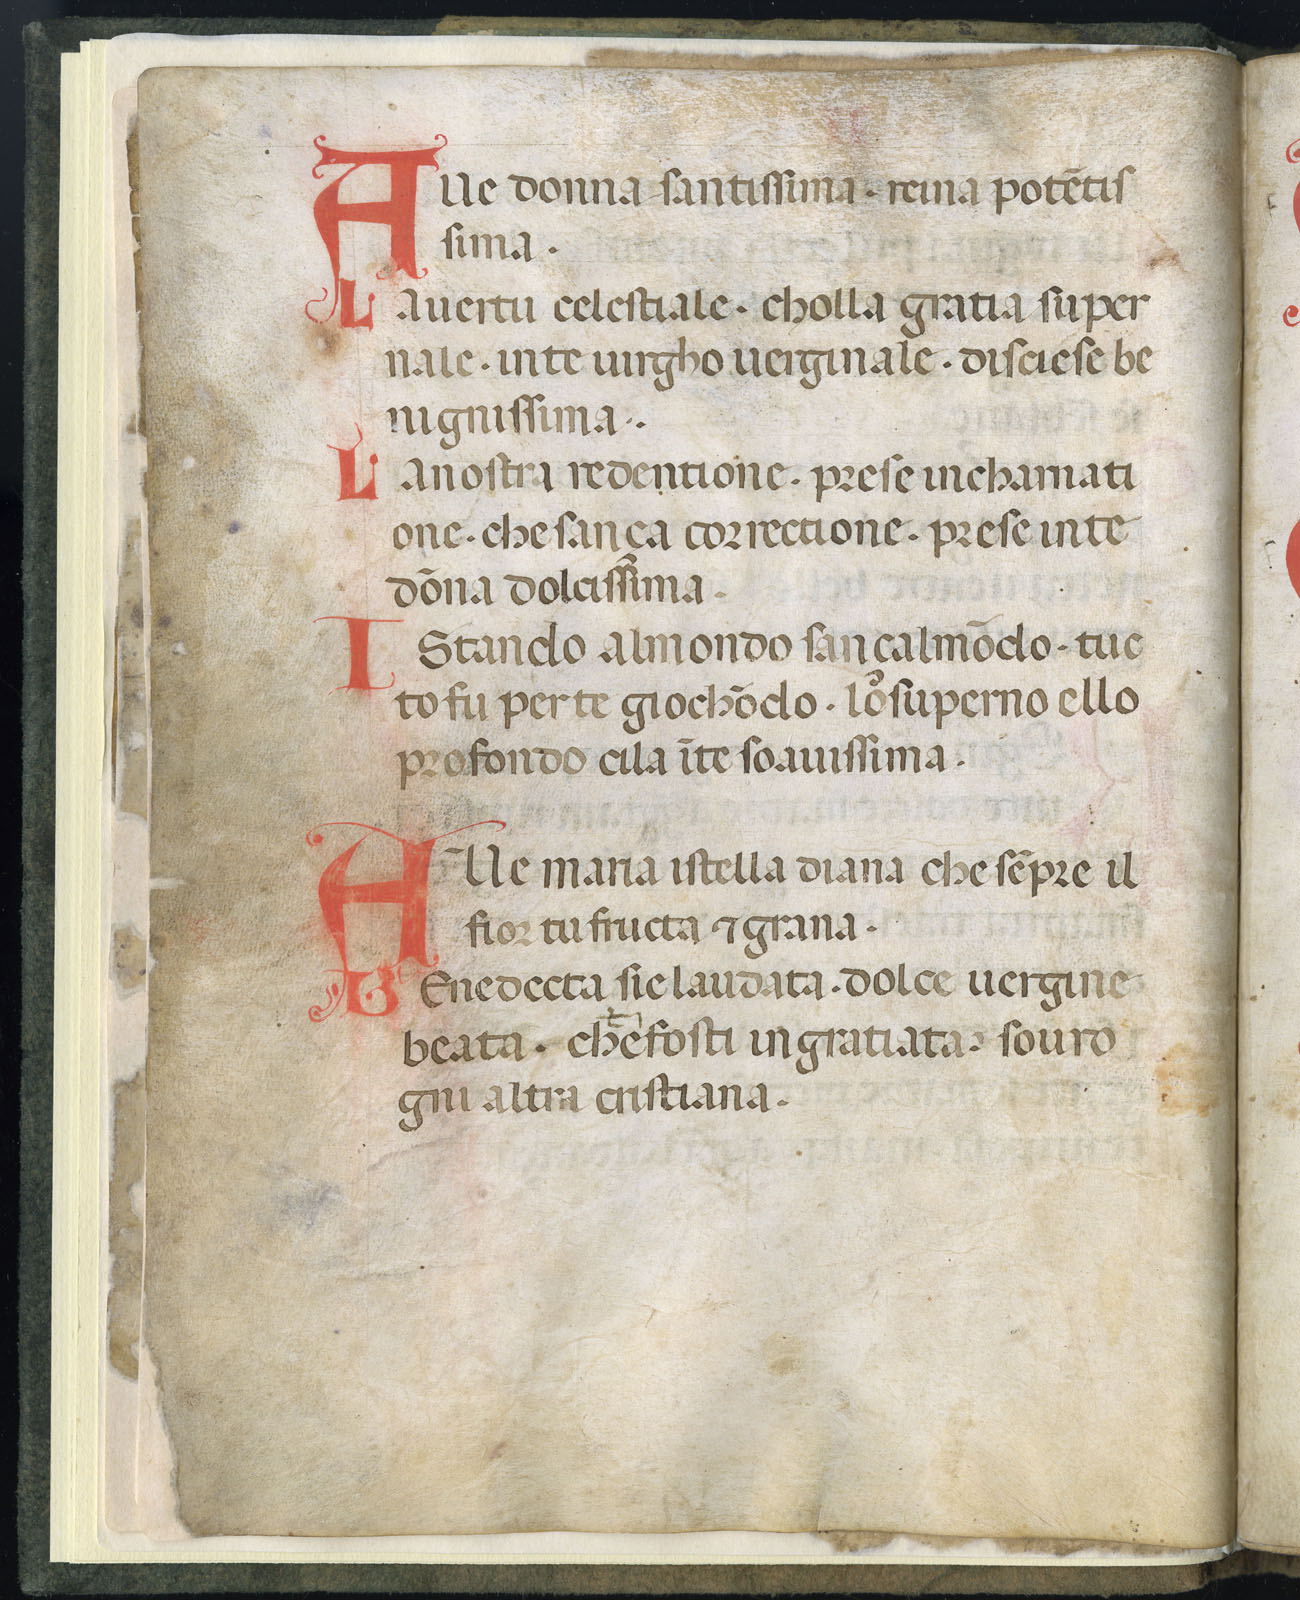 AUe donna santissima · reina potētis
sima ·
Lauertu celestiale · cholla gratia super
nale · inte uirgho uerginale · disciese be
nignissima ·
Lanostra redentione · prese incharnati
one · che sança correctione · prese inte
dōna dolcissima ·
IStando almondo sançalmōdo · tuc
tofu per te giochōdo · losuperno ello
profondo cila īte soauissima ·
AUe maria istella diana che sēpre il
fior tu fructa ⁊ grana ·
BEnedecta sie laudata · dolce uergine
beata · che fosti ingratiata · souro
gni altra cristiana ·